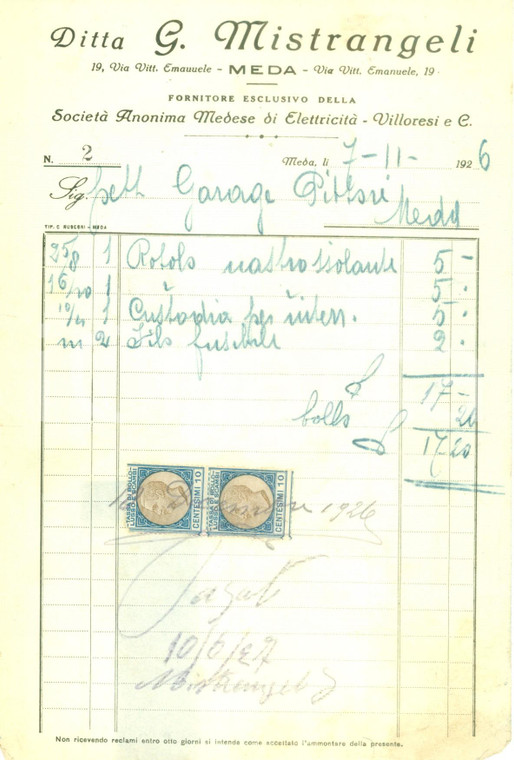 Ditta G. Mistrangeli
19, Via Vitt. Emanuele - MEDA - Via Vitt. Emanuele, 19
FORNITORE ESCLUSIVO DELLA
Società Anonima Medese di Elettricità - Villoresi e C.
N. 2 Meda, li 7-11- 1926
Sig. Garage
Meda
TIP. C. RUSCONI - MEDA
25/8 1 Rotolo nastro isolante 5 -
16/10 1 " " 5 .
1 Custodia per inter. 5 .
m 2 Filo fusibile 2 .
17 -
bollo 20
17 20
TASSA DI BOLLO LUSSO E SCAMBI CENTESIMI 10
TASSA DI BOLLO LUSSO E SCAMBI CENTESIMI 10
1926
Pagato
10/6/27
Mistrangeli
Non ricevendo reclami entro otto giorni si intende come accettato l'ammontare della presente.